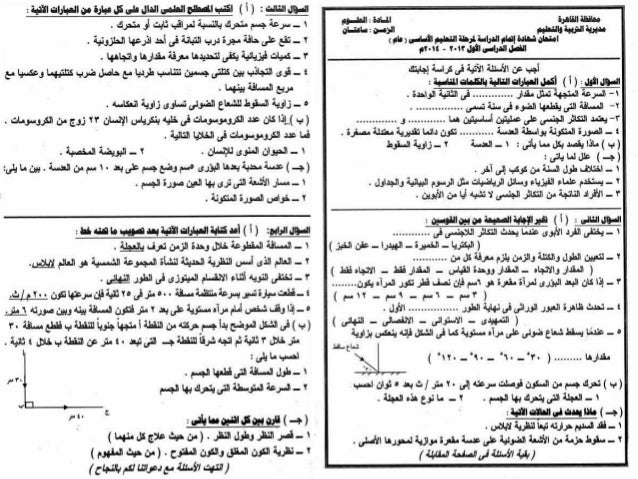 محافظة القاهرة
مديرية التربية والتعليم
المادة: العلوم
الزمن: ساعتان
امتحان شهادة إتمام الدراسة لمرحلة التعليم الأساسى (عام)
الفصل الدراسى الأول ٢٠١٣ - ٢٠١٤م
أجب عن الأسئلة الآتية فى كراسة إجابتك
السؤال الأول: ( أ ) أكمل العبارات التالية بالكلمات المناسبة :
١ – السرعة المتجهة تمثل مقدار .......... فى الثانية الواحدة .
٢ – المسافة التى يقطعها الضوء فى سنة تسمى ............
٣ – يعتمد التكاثر الجنسى على عمليتين أساسيتين هما ........ و ........
٤ – الصورة المتكونة بواسطة العدسة ........ تكون دائما تقديرية معتدلة مصغرة .
(ب) ماذا يقصد بكل مما يأتى : ١ – العدسة ٢ – زاوية السقوط
(جـ) علل لما يأتى :
١ – اختلاف طول السنة من كوكب إلى آخر .
٢ – يستخدم علماء الفيزياء وسائل الرياضيات مثل الرسوم البيانية والجداول .
٣ – الأفراد الناتجة من التكاثر الجنسى لا تشبه أيا من الأبوين .
السؤال الثانى : ( أ ) تخير الإجابة الصحيحة من بين القوسين :
١ – يختفى الفرد الأبوى عندما يحدث التكاثر اللاجنسى فى ........
( البكتريا – الخميرة – الهيدرا – عفن الخبز )
٢ – لتعيين الطول والكتلة والزمن يلزم معرفة كل من ........
( المقدار والاتجاه – المقدار ووحدة القياس – المقدار فقط – الاتجاه فقط )
٣ – إذا كان البعد البؤرى لمرآة مقعرة هو ٦سم فإن نصف قطر تكور المرآة يكون........
( ٣ سم – ٦ سم – ٩ سم – ١٢ سم )
٤ – تحدث ظاهرة العبور الوراثى فى نهاية الطور ........ الأول .
( التمهيدى – الاستوائى – الانفصالى – النهائى )
٥ – عندما يسقط شعاع ضوئى على مرآه مستوية كما فى الشكل فإنه ينعكس بزاوية
مقدارها ........ ( ٣٠° – ٦٠° – ٩٠° – ١٢٠° )
شعاع ساقط
(ب) تحرك جسم من السكون فوصلت سرعته إلى ٢٠ متر / ث بعد ٥ ثوان احسب
١ – العجلة التى يتحرك بها الجسم . ٢ – ما نوع هذه العجلة .
(جـ) ماذا يحدث فى الحالات الآتية :
١ – فقد السديم حرارته تبعاً لنظرية لابلاس .
٢ – سقوط حزمة من الأشعة الضوئية على عدسة مقعرة موازية لمحورها الأصلى .
( بقية الأسئلة فى الصفحة المقابلة )
السؤال الثالث : ( أ ) اكتب المصطلح العلمى الدال على كل عبارة من العبارات الآتية :
١ – سرعة جسم متحرك بالنسبة لمراقب ثابت أو متحرك .
٢ – تقع على حافة مجرة درب التبانة فى أحد أذرعها الحلزونية .
٣ – كميات فيزيائية يكفى لتحديدها معرفة مقدارها واتجاهها .
٤ – قوى التجاذب بين كتلتى جسمين تتناسب طرديا مع حاصل ضرب كتلتيهما وعكسيا مع
مربع المسافة بينهما .
٥ – زاوية السقوط للشعاع الضوئى تساوى زاوية انعكاسه .
(ب) إذا كان عدد الكروموسومات فى خلية بنكرياس الإنسان ٢٣ زوج من الكروموسومات
فما عدد الكروموسومات فى الخلايا التالية .
١ – الحيوان المنوى للإنسان . ٢ – البويضة المخصبة .
(جـ) عدسة محدبة بعدها البؤرى ٥سم وضع جسم على بعد ١٠ سم من العدسة . بين ما يلى:
١ – مسار الأشعة التى ترى بها العين صورة الجسم .
٢ – خواص الصورة المتكونة .
السؤال الرابع: ( أ ) أعد كتابة العبارات الآتية بعد تصويب ما تحته خط :
١ – المسافة المقطوعة خلال وحدة الزمن تعرف بالعجلة .
٢ – العالم الذى أسس النظرية الحديثة لنشأة المجموعة الشمسية هو العالم لابلاس.
٣ – تختفى النوية أثناء الانقسام الميتوزى فى الطور النهائى .
٤ – قطعت سيارة تسير بسرعة منتظمة مسافة ٥٠٠ متر فى ٢٥ ثانية فإن سرعتها تكون ٢٠٠ م / ث.
٥ – إذا وقف شخص أمام مرآه مستوية على بعد ٢ متر فتكون المسافة بينه وبين صورته ٦ متر.
(ب) فى الشكل الموضح بدأ جسم حركته من النقطة أ متجهاً جنوباً للنقطة ب فقطع مسافة ٣٠
متر خلال ٣ ثانية ثم اتجه شرقا للنقطة جـ التى تبعد ٤٠ متر عن النقطة ب خلال ٤ ثانية .
احسب ما يلى :
١ – طول المسافة التى قطعها الجسم .
٢ – السرعة المتوسطة التى يتحرك بها الجسم
٣٠ متر
ب
٤٠ متر
ج
(جـ) قارن بين كل اثنين مما يأتى :
١ – قصر النظر وطول النظر . ( من حيث علاج كل منهما )
٢ – نظرية الكون المغلق والكون المفتوح . ( من حيث المفهوم )
( انتهت الأسئلة مع دعواتنا لكم بالنجاح )